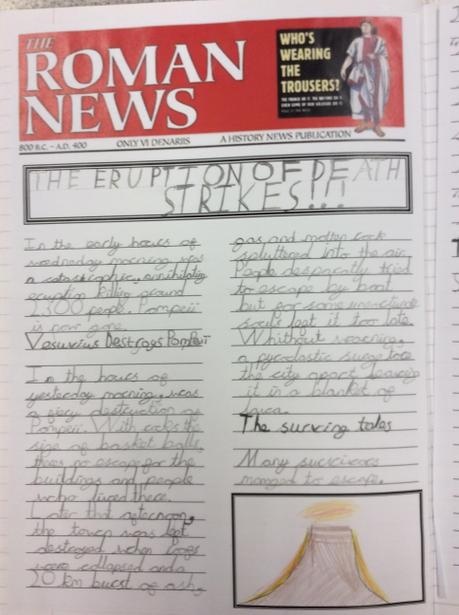 THE
ROMAN
NEWS
WHO'S
WEARING
THE
TROUSERS?
800 B.C. – A.D. 400
ONLY VI DENARIIS
A HISTORY NEWS PUBLICATION
THE ERUPTION OF DEATH
STRIKES!!!
In the early hours of
wednesday morning, was
a catastrophic, annihilating
eruption killing around
2300 people. Pompeii
is now gone.
Vesuvius Destroys Pompeii
In the hours of
yesterday morning, was
a firey destruction of
Pompeii. With rocks the
size of basket balls,
theres no escape for the
buildings and people
who lived there.
Later that afternoon,
the town was left
destroyed when roofs
were collapsed and a
20 km burst of ash,
gas, and molten rock
spluttered into the air.
People desperatly tried
to escape by boat
but for some
souls left it too late.
Whithout warning,
a pyroclastic surge tore
the city apart leaving
it in a blanket of
The surving tales
Many survivors
manged to escape.